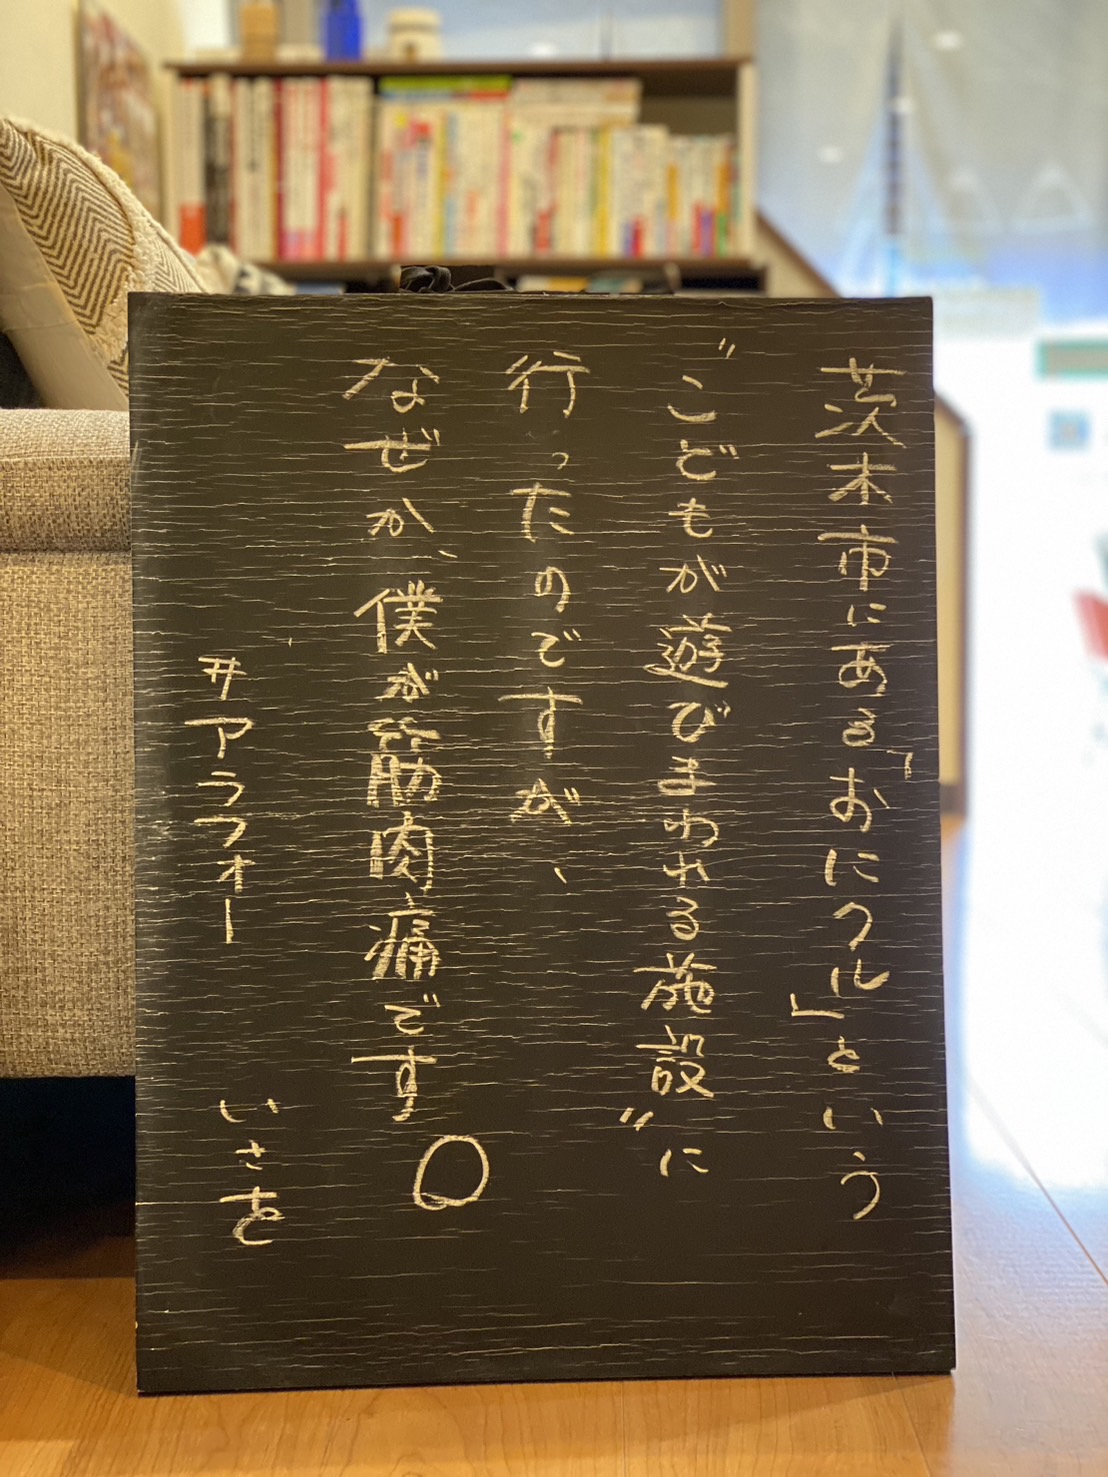 茨木市にある「おにクル」という
"こどもが遊びまわれる施設"に
行ったのですが、
なぜか、僕が筋肉痛です。
#アラフォー
いさを